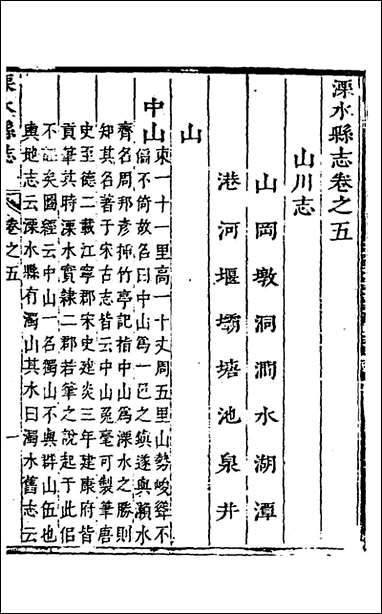 溧水縣志卷之五
山川志
山岡墩洞澗水湖潭
港河堰壩塘池泉井
山
中山 東一十一里高一十丈周五里山勢峻聳不
偏不倚故名曰中山為一邑之鎮遂與瀨水
齊名周邦彥插竹亭記指中山為溧水之勝則
知其名著于宋古志皆云中山兔毫可製筆唐
史至德二載江寧郡宋史建炎三年建康府皆
貢筆其時溧水實隸二郡若筆之說起于此但
不 矣圖經云中山一名獨山不與群山伍也
輿地志云溧水縣有濁山其水曰濁水舊志云
溧水縣志
卷之五
一